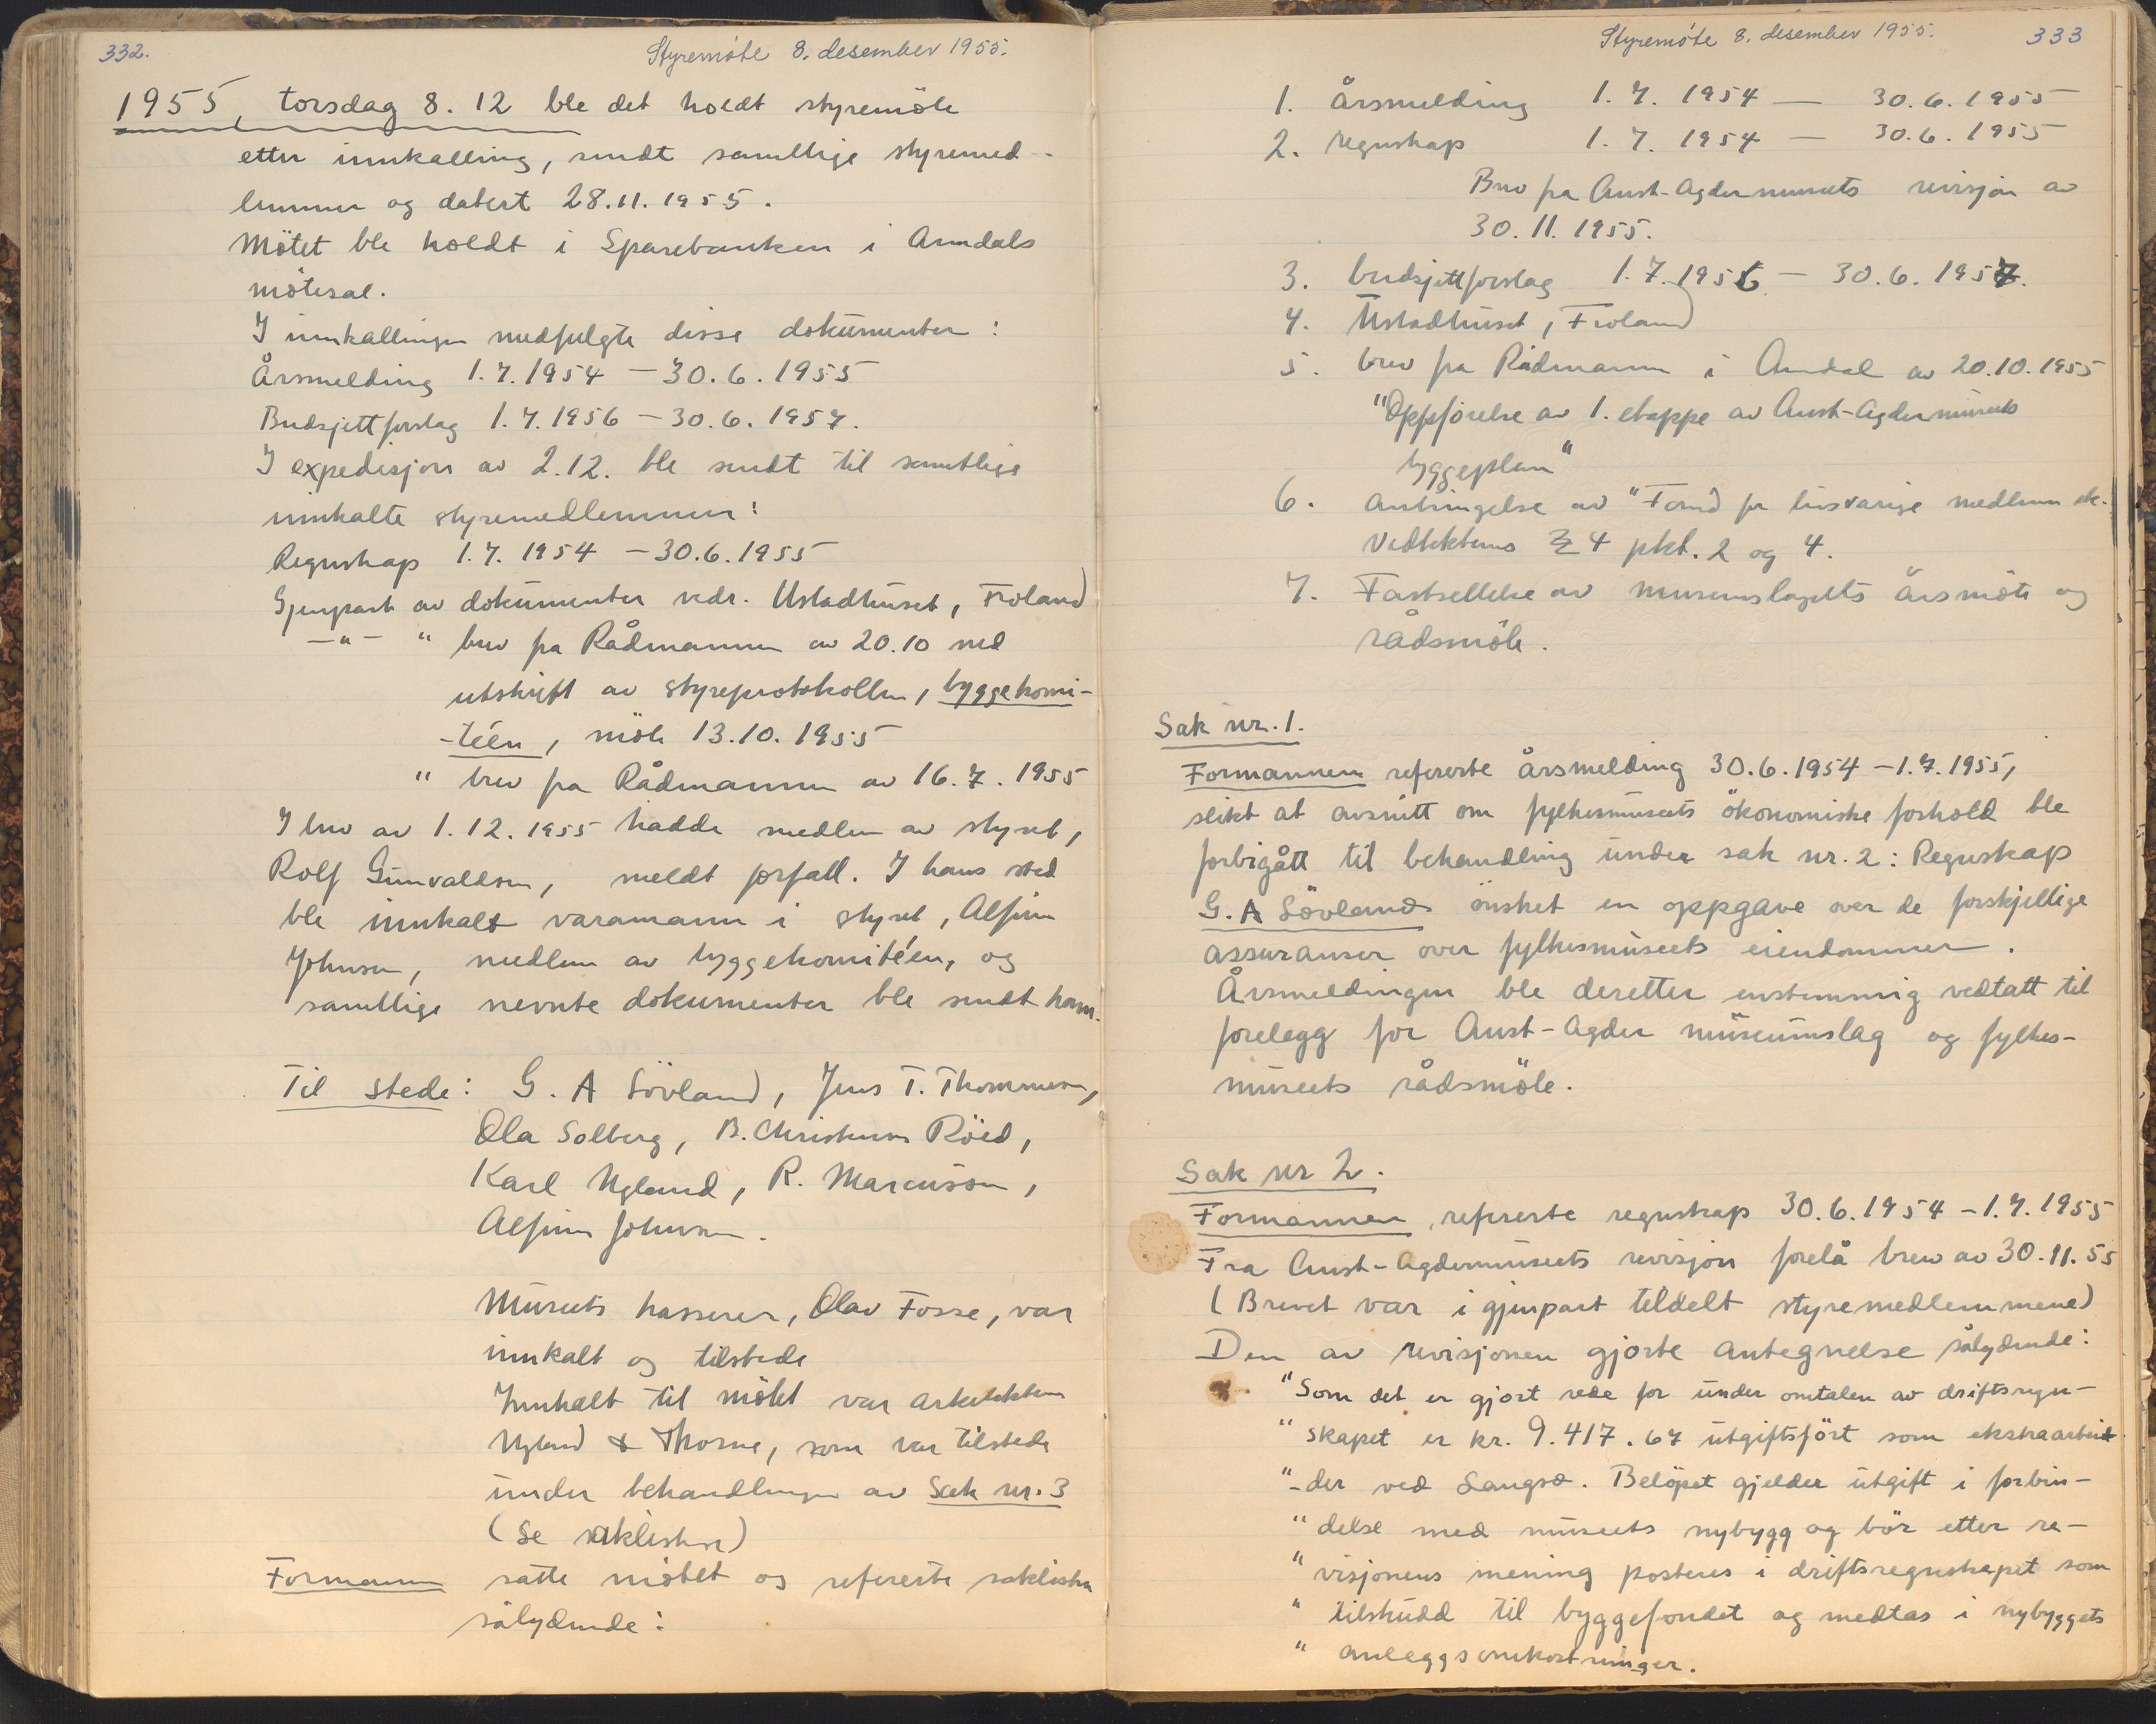 332.
Styremöte 8. desember 1955.
1955, torsdag 8. 12 ble det holdt styremöte
etter innkalling, sendt samtlige styremed-
lemmer og datert 28.11.1955.
Mötet ble holdt i Sparebanken i Arendals
mötesal.
I innkallingen medfulgte disse dokumenter:
Årsmelding 1.7.1954 — 30.6.1955
Budsjettforslag 1.7.1956 — 30.6.1957.
I expedisjon av 2.12. ble sendt til samtlige
innkalte styremedlemmer:
Regnskap 1.7.1954 — 30.6.1955
Gjenpart av dokumenter vedr. Ustadhuset, Froland
—"— " brev fra Rådmannen av 20.10 med
utskrift av styreprotokollen, byggekomi-
-téen, möte 13.10.1955
" brev fra Rådmannen av 16.7.1955
I brev av 1.12.1955 hadde medlem av styret,
Rolf Gunvaldsen, meldt forfall. I hans sted
ble innkalt varamann i styret, Alfinn
Johnsen, medlem av byggekomitéen, og
samtlige nevnte dokumenter ble sendt ham.
Til stede: G. A Sövland, Jens T. Thommesen,
Ola Solberg, B. Christensen Röed,
Karl Nyland, R. Marcusson,
Alfinn Johnsen.
Museets kasserer, Olav Fosse, var
innkalt og tilstede
Innkalt til mötet var arkitektene
Nyland & Thorne, som var tilstede
under behandlingen av Sak nr. 3
(Se saklisten)
Formannen satte mötet og refererte saklisten
sålydende:
Styremöte 8. desember 1955.
333
1. Årsmelding 1.7.1954 — 30.6.1955
2. regnskap 1.7.1954 — 30.6.1955
Brev fra Aust-Agdermuseets revisjon av
30.11.1955.
3. budsjettforslag 1.7.1956 — 30.6.1957.
4. Ustadhuset, Froland
5. brev fra Rådmannen i Arendal av 20.10.1955
"Oppförelse av 1. etappe av Aust-Agdermuseets
byggeplan"
6. anbringelse av "Fond for livsvarige medlemmer etc.
Vedtektenes § 4 pkt. 2 og 4.
7. Fastsettelse av museumslagets årsmöte og
rådsmöte.
Sak nr. 1.
Formannen refererte årsmelding 30.6.1954 — 1.7.1955,
slikt at avsnitt om fylkesmuseets ökonomiske forhold ble
forbigått til behandling under sak nr. 2: Regnskap
G. A Sövland önsket en oppgave over de forskjellige
assuranser over fylkesmuseets eiendommer.
Årsmeldingen ble deretter enstemmig vedtatt til
forelegg for Aust-Agder museumslag og fylkes-
museets rådsmöte.
Sak nr 2.
Formannen refererte regnskap 30.6.1954 — 1.7.1955
Fra Aust-Agdermuseets revisjon forelå brev av 30.11.55
(Brevet var i gjenpart tildelt styremedlemmene)
Den av revisjonen gjorte antegnelse sålydende:
"Som det er gjort rede for under omtalen av driftsregn-
"skapet er kr. 9.417.67 utgiftsfört som ekstraarbeid
"-der ved Langsæ. Belöpet gjelder utgift i forbin-
"delse med museets nybygg og bör etter re-
"visjonens mening posteres i driftsregnskapet som
"tilskudd til byggefondet og medtas i nybyggets
"anleggsomkostninger.